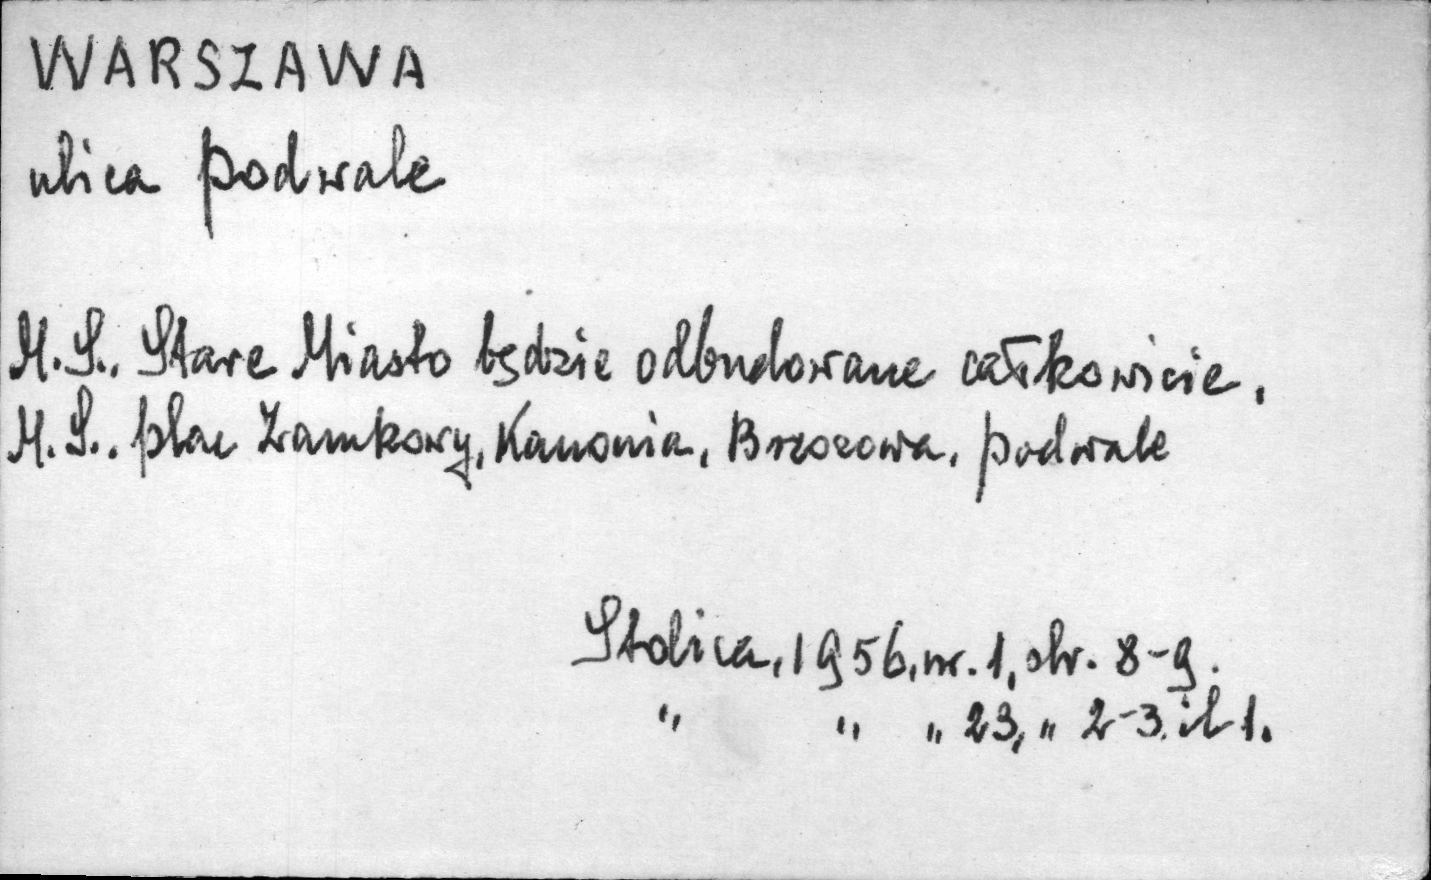 WARSZAWA
ulica Podwale
M.S.. Stare Miasto będzie odbudowane całkowicie.
M.S.. plac Zamkowy, Kanonia, Brzozowa, Podwale
Stolica, 1956, nr. 1, str. 8-9.
" " " 23, " 2-3. il 1.